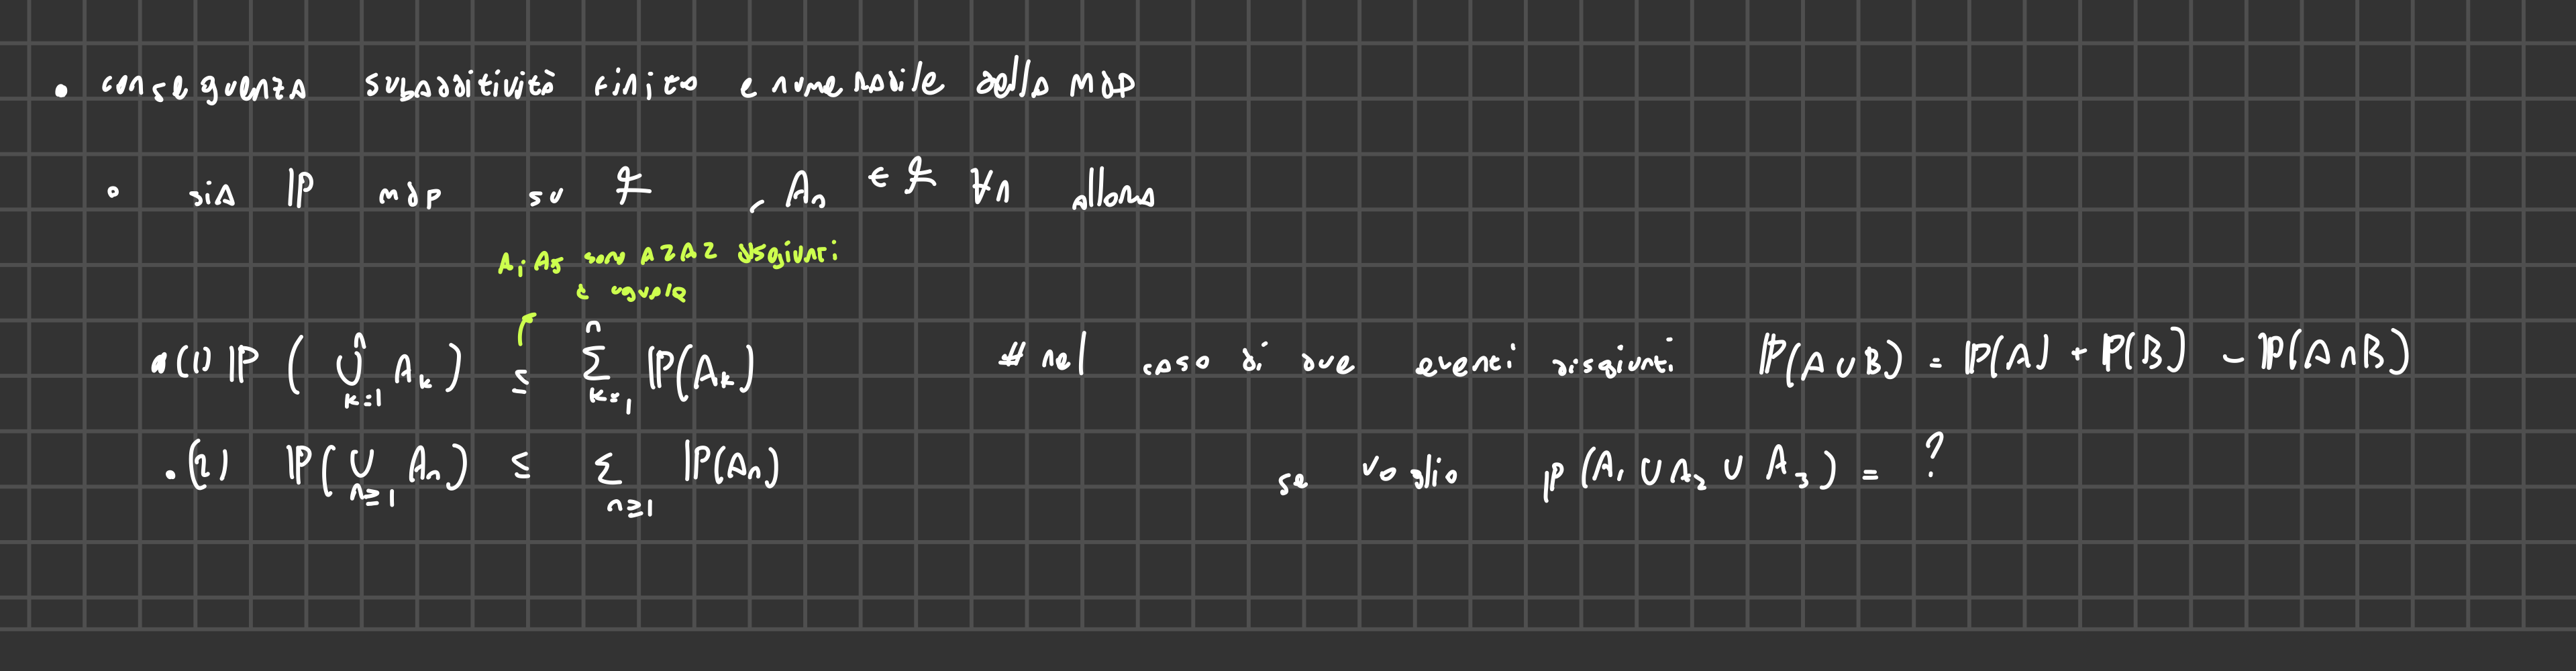 • conseguenza subadditività finita e numerabile della mdp
◦ sia ℙ mdp su ℱ , Aₙ ∈ ℱ ∀n allora
Aᵢ Aⱼ sono A 2 A 2 disgiunti
è uguale
• (1) ℙ ( ⋃ₖ₌₁ⁿ Aₖ ) ≤ ∑ₖ₌₁ⁿ ℙ(Aₖ) # nel caso di due eventi disgiunti ℙ(A ∪ B) = ℙ(A) + ℙ(B) - ℙ(A ∩ B)
• (2) ℙ( ⋃ₙ≥₁ Aₙ) ≤ ∑ₙ≥₁ ℙ(Aₙ) se voglio ℙ(A₁ ∪ A₂ ∪ A₃) = ?